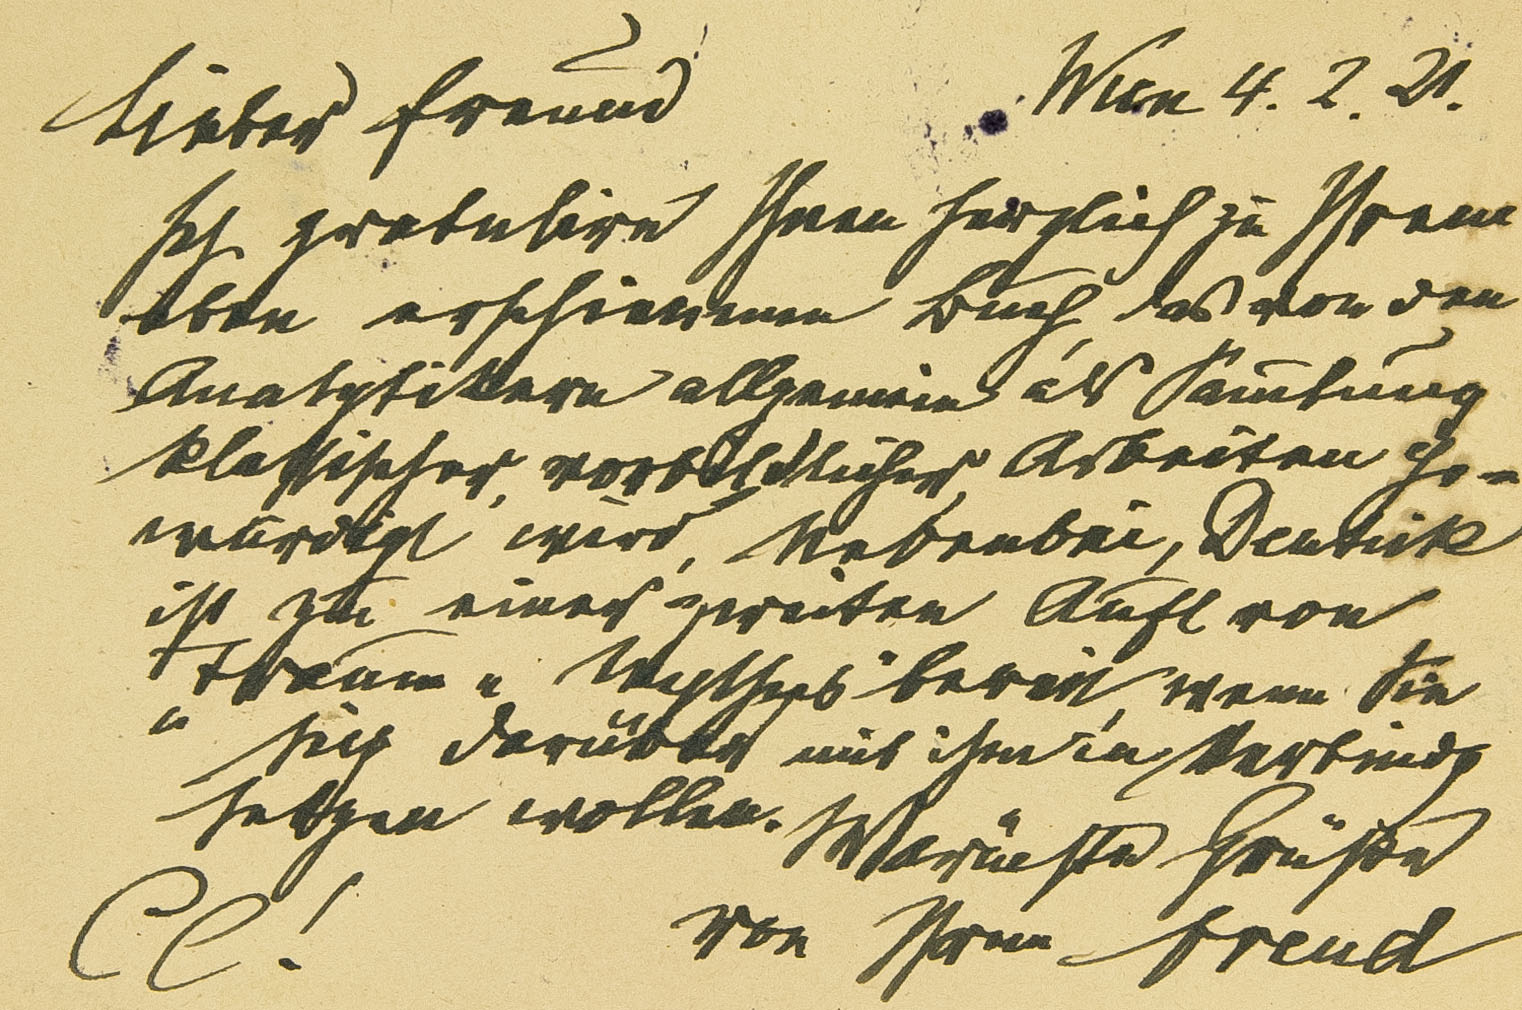 Wien 4. 2. 21.
Lieber Freund
Ich gratulire Ihnen herzlich zu Ihrem
eben erschienenen Buch, das von den
Analytikern allgemein als Samlung
klassischer, vorbildlicher Arbeiten ge-
würdigt wird, Nebenbei, Deuticke
ist zu einer zweiten Aufl von
"Traum u Mythus" bereit, wenn Sie
sich darüber mit ihm in Verbindg
setzen wollen.
Wärmste Grüße
von Ihrem Freud
CC!